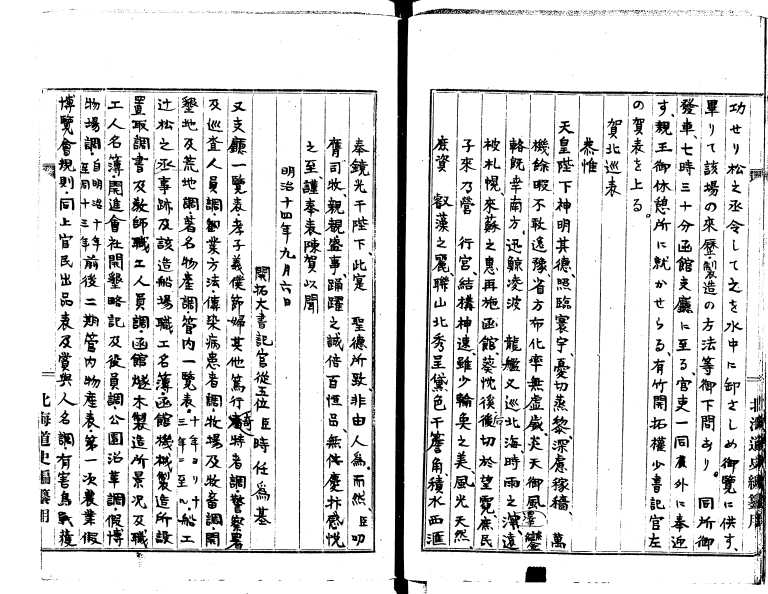 功せり松之丞令して之を水中に卸さしめ御覽に供す、
畢りて該場の來歴、製造の方法等御下問あり。同所御
發車、七時三十分函館支廳に至る、官吏一同屋外に奉迎
す、親王御休憩所に就かせらる、有竹開拓權少書記官左
の賀表を上る。
賀北巡表
恭惟
天皇陛下神明其德、照臨寰宇、憂切蒸黎、深慮稼穡、萬
機餘暇不敢逸豫、省方布化率無虚歳、炎天御風鑾
輅既幸南方、迅鯨凌波 龍艦又巡北海、時雨之澤遠
被札幌、來蘇之惠再施函館、葵忱後后切於望霓、庶民
子來乃營 行宮、結構神速、雖少輪奐之美、風光天然、
底資 叡藻之麗、聯山北秀呈黛色于簷角、積水西滙
奉鏡光于陛下、此是 聖德所致、非由人爲、而然、臣叨
膺司牧、親覩盛事、踊躍之誠倍百恒品、無任慶抃感悦
之至謹奉表陳賀以聞
明治十四年九月六日
開拓大書記官從五位臣時任爲基
又支廳一覽表、孝子義僕節婦其他篤行奇特者調、警察署
及巡査人員調、勸業方法、傳染病患者調、牧場及牧畜調、開
墾地及荒地調、著名物産調、管内一覽表、十年ヨリ十三年ニ至ル、船工
辻松之丞事跡及該造船場職工名簿、函館機械製造所設
置取調書及教師職工人員調、函館燧木製造所景况及職
工人名簿、開進會社開墾略記及役員調、公園沿革調、假博
物場調、自明治十年至同十三年前後二期管内物産表、第一次農業假
博覽會規則同上官民出品表及賞與人名調、有害鳥獸獲
北海道史編纂用
北海道史編纂用